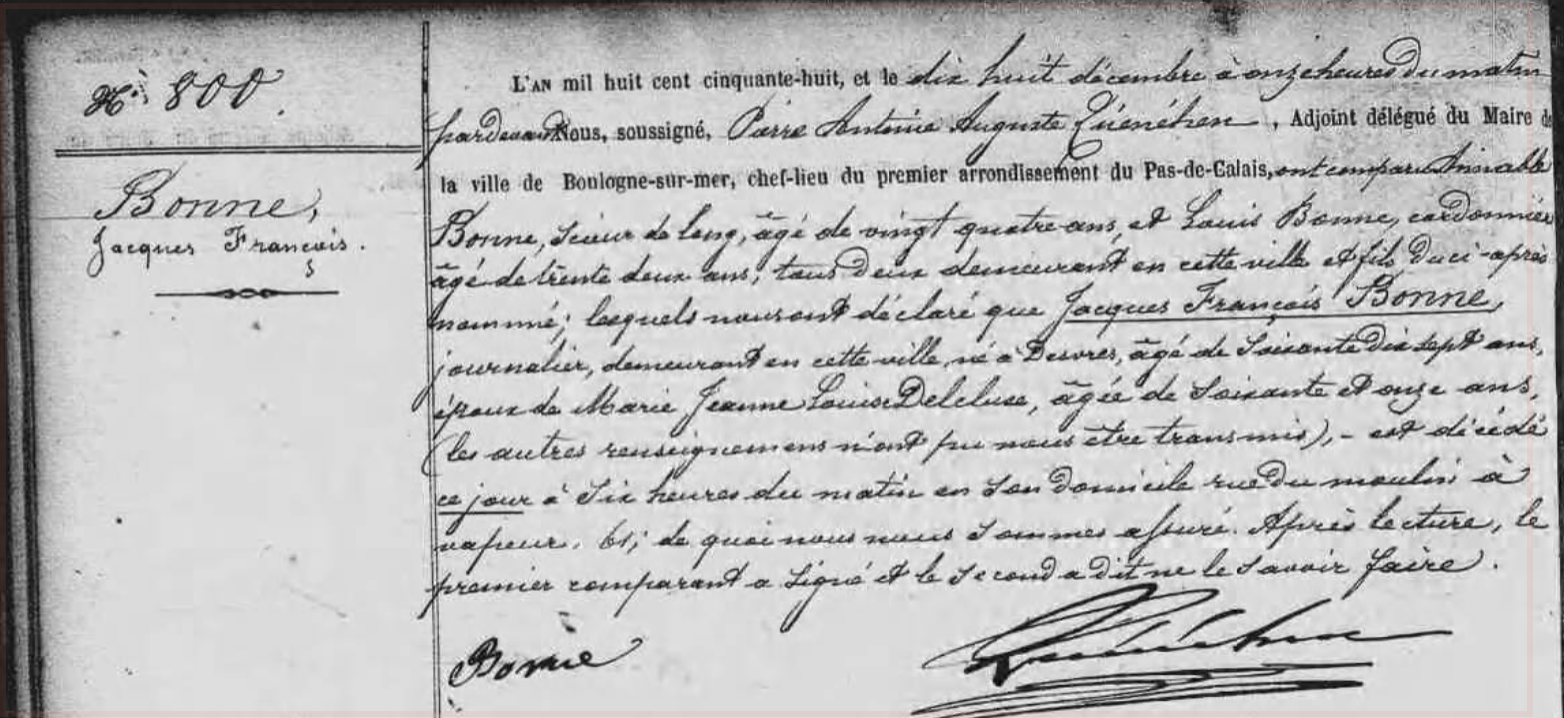 N° 800.
Bonne,
Jacques François.
L'AN mil huit cent cinquante-huit, et le dix huit décembre à onze heures du matin
pardevant Nous, soussigné, Pierre Antoine Auguste Quénéhen, Adjoint délégué du Maire de
la ville de Boulogne-sur-mer, chef-lieu du premier arrondissement du Pas-de-Calais, ont comparu Aimable
Bonne, scieur de long, âgé de vingt quatre ans, et Louis Bonne, cordonnier
âgé de trente deux ans, tous deux demeurant en cette ville et fils du ci-après
nommé; lesquels nous ont déclaré que Jacques François Bonne,
journalier, demeurant en cette ville, né à Desvres, âgé de soixante dix sept ans,
époux de Marie Jeanne Louise Delcluse, âgée de soixante et onze ans,
(les autres renseignemens n'ont pu nous être transmis), - est décédé
ce jour à six heures du matin en son domicile rue du moulin à
vapeur, 61; de quoi nous nous sommes assuré. Après lecture, le
premier comparant a signé et le second a dit ne le savoir faire.
Bonne
Quénéhen